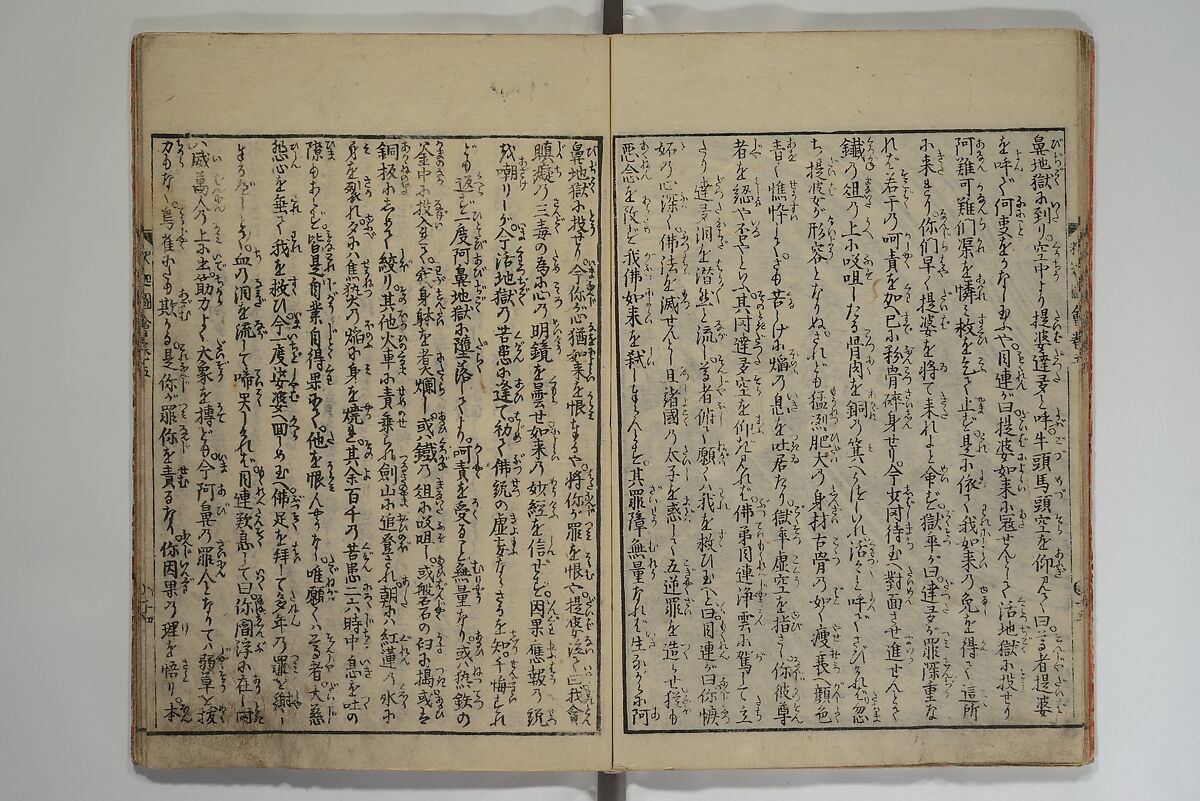 鼻地獄に到り空中より提婆達多と呼ぶ牛頭馬頭空を仰ぎ見て曰る者提婆
を呼ぶ何事をかなし玉ふや目連が曰提婆如来に冦せんとして活地獄に投せり
阿難可難们渠を憐て救を乞て止ず是に依て我如来の免を得て這所
に来きり你們早く提婆を将て来れよと命ば獄卒が曰達多が罪深重な
れば若干の呵責を加已に粉骨砕身せり今女閃待玉へ對面させ進せんとて
鐵の俎の上に㕮咀したる骨肉を銅の箕へとをしいれ活々と呼さけびければ忽
ち提婆が形容となりぬされども猛烈肥大の身材古骨の如く痩衰顔色
青く憔悴しさも苦しげに焔の息を吐居たり獄卒虚空を指さし你彼尊
者を認や否やといふ其时達多空を仰ぎ見れば佛弟目連浄雲に駕して立
たり達多涙を潜然と流し尊者惟く願くハ我を救ひ玉へと曰目連が曰你嫉
妬の心深く佛法を滅せんとし且諸國の太子を惑して五逆罪を造らせ猶も
悪念を改ず我佛如来を弑しまゐらんとす其罪障無量なれば生ながら阿
鼻地獄に投せり今你心猶如来を恨まるや将你が罪を恨や提婆泣て曰我會
瞋癡の三毒の為に心の明鏡を曇せ如来の妙経を信ぜず因果應報の説
を嘲りしが今活地獄の苦患に逢て初て佛説の虚妄ならざるを知千悔すれ
ども返らず一度阿鼻地獄に墮落してより呵責を受ると無量なり或ハ熱鉄の
釜中に投入られて我身躰を煮爛し或ハ鐵の俎に㕮咀し或般石の臼に搗或ハ
銅抜にかけて絞り其他火車に責乗られ劍山に追登され朝にハ紅蓮の氷に
身を裂れ夕にハ焦熱の焔に身を焼る其余百千の苦患二六時中息を吐の
隙もあらず皆是自業自得果にて他を恨んやうもなし唯願くハ尊者大慈
怨心を垂て我を救ひ今一度婆婆へ回しめ玉へ佛足を拜して多年の罪を謝し
まゐらせんと血の涙を流して啼哭すれば目連歎息して曰你閻浮に在し时
ハ威萬人の上に出助力して大象を摶ども今阿鼻の罪人となりてハ弱草を援
力もなく鳥雀にも欺かる是你が罪你を責るなり你因果の理を悟り本
釋迦圖會巻五